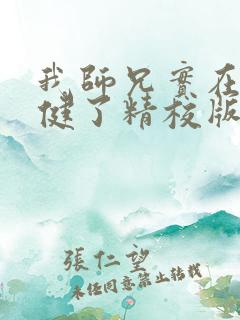 我師兄實在
健了精校版
張仁望
未經同意禁止轉載